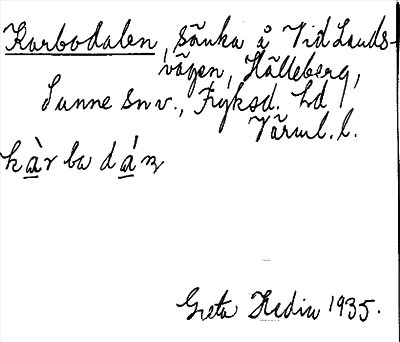 Karbodalen, sänka å Vid Lands-
vägen, Hälleberg,
Sunne snv., Fryksd. hd
Värml. l.
kàr ba dáṇ
Greta Hedin 1935.